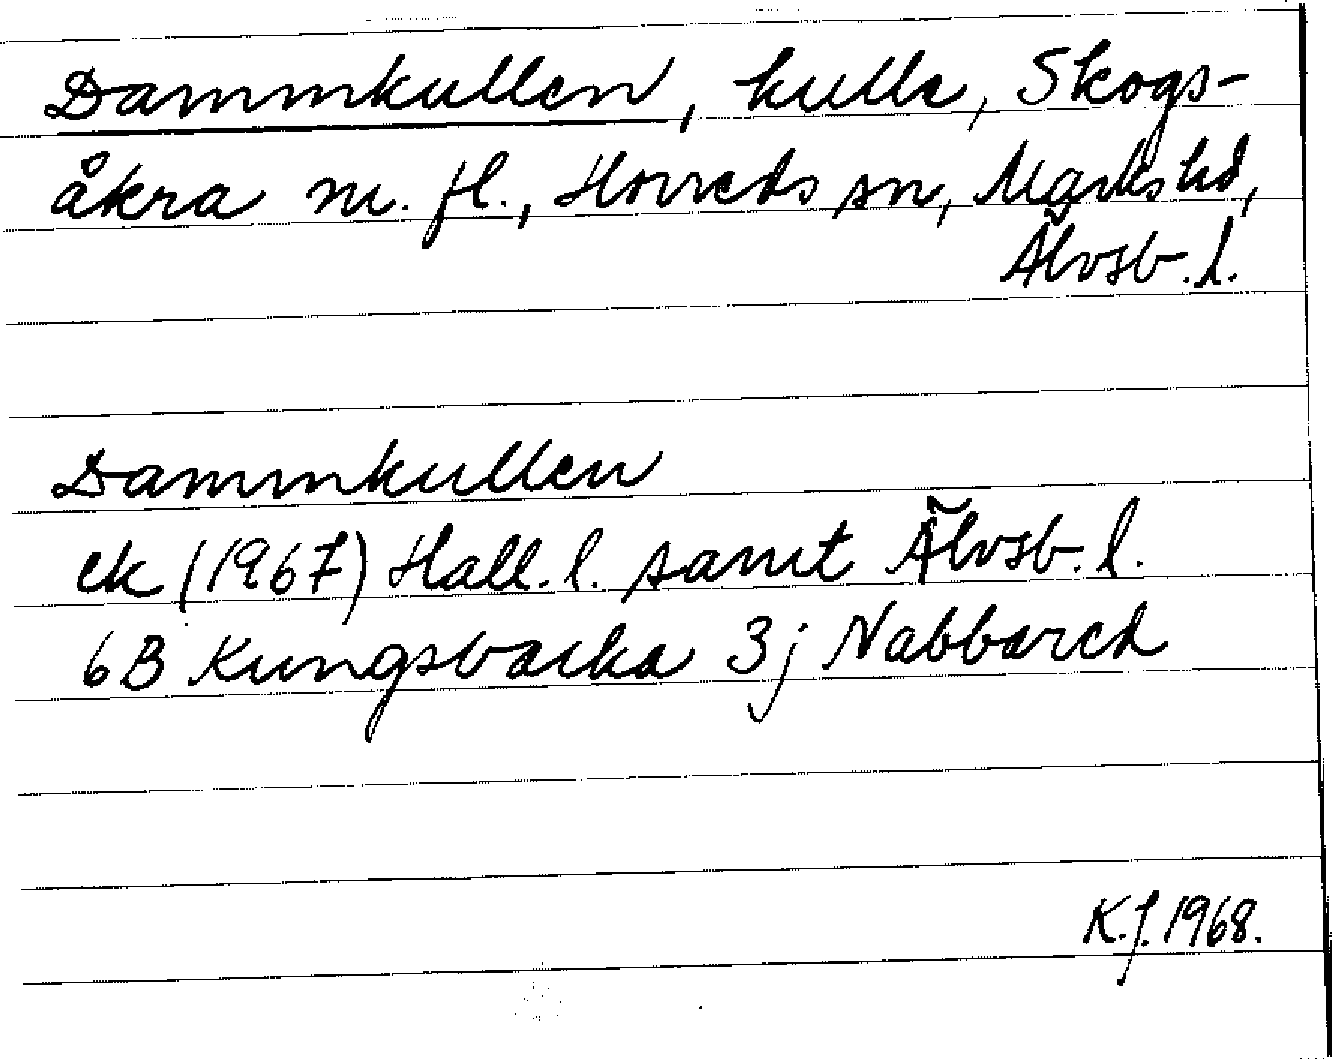 Dammkullen, kulle, Skogs-
åkra m. fl., Horreds sn, Marks hd,
Älvsb. l.
Dammkullen
ek (1967) Hall. l. samt Älvsb. l.
6B Kungsbacka 3j Nabbared
K.J. 1968.